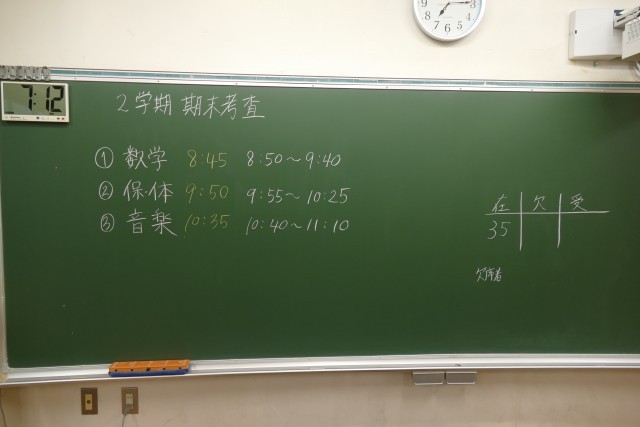 7:12
2学期 期末考査
① 数学 8:45 8:50～9:40
② 保・体 9:50 9:55～10:25
③ 音楽 10:35 10:40～11:10
在 欠 受
35
欠席者